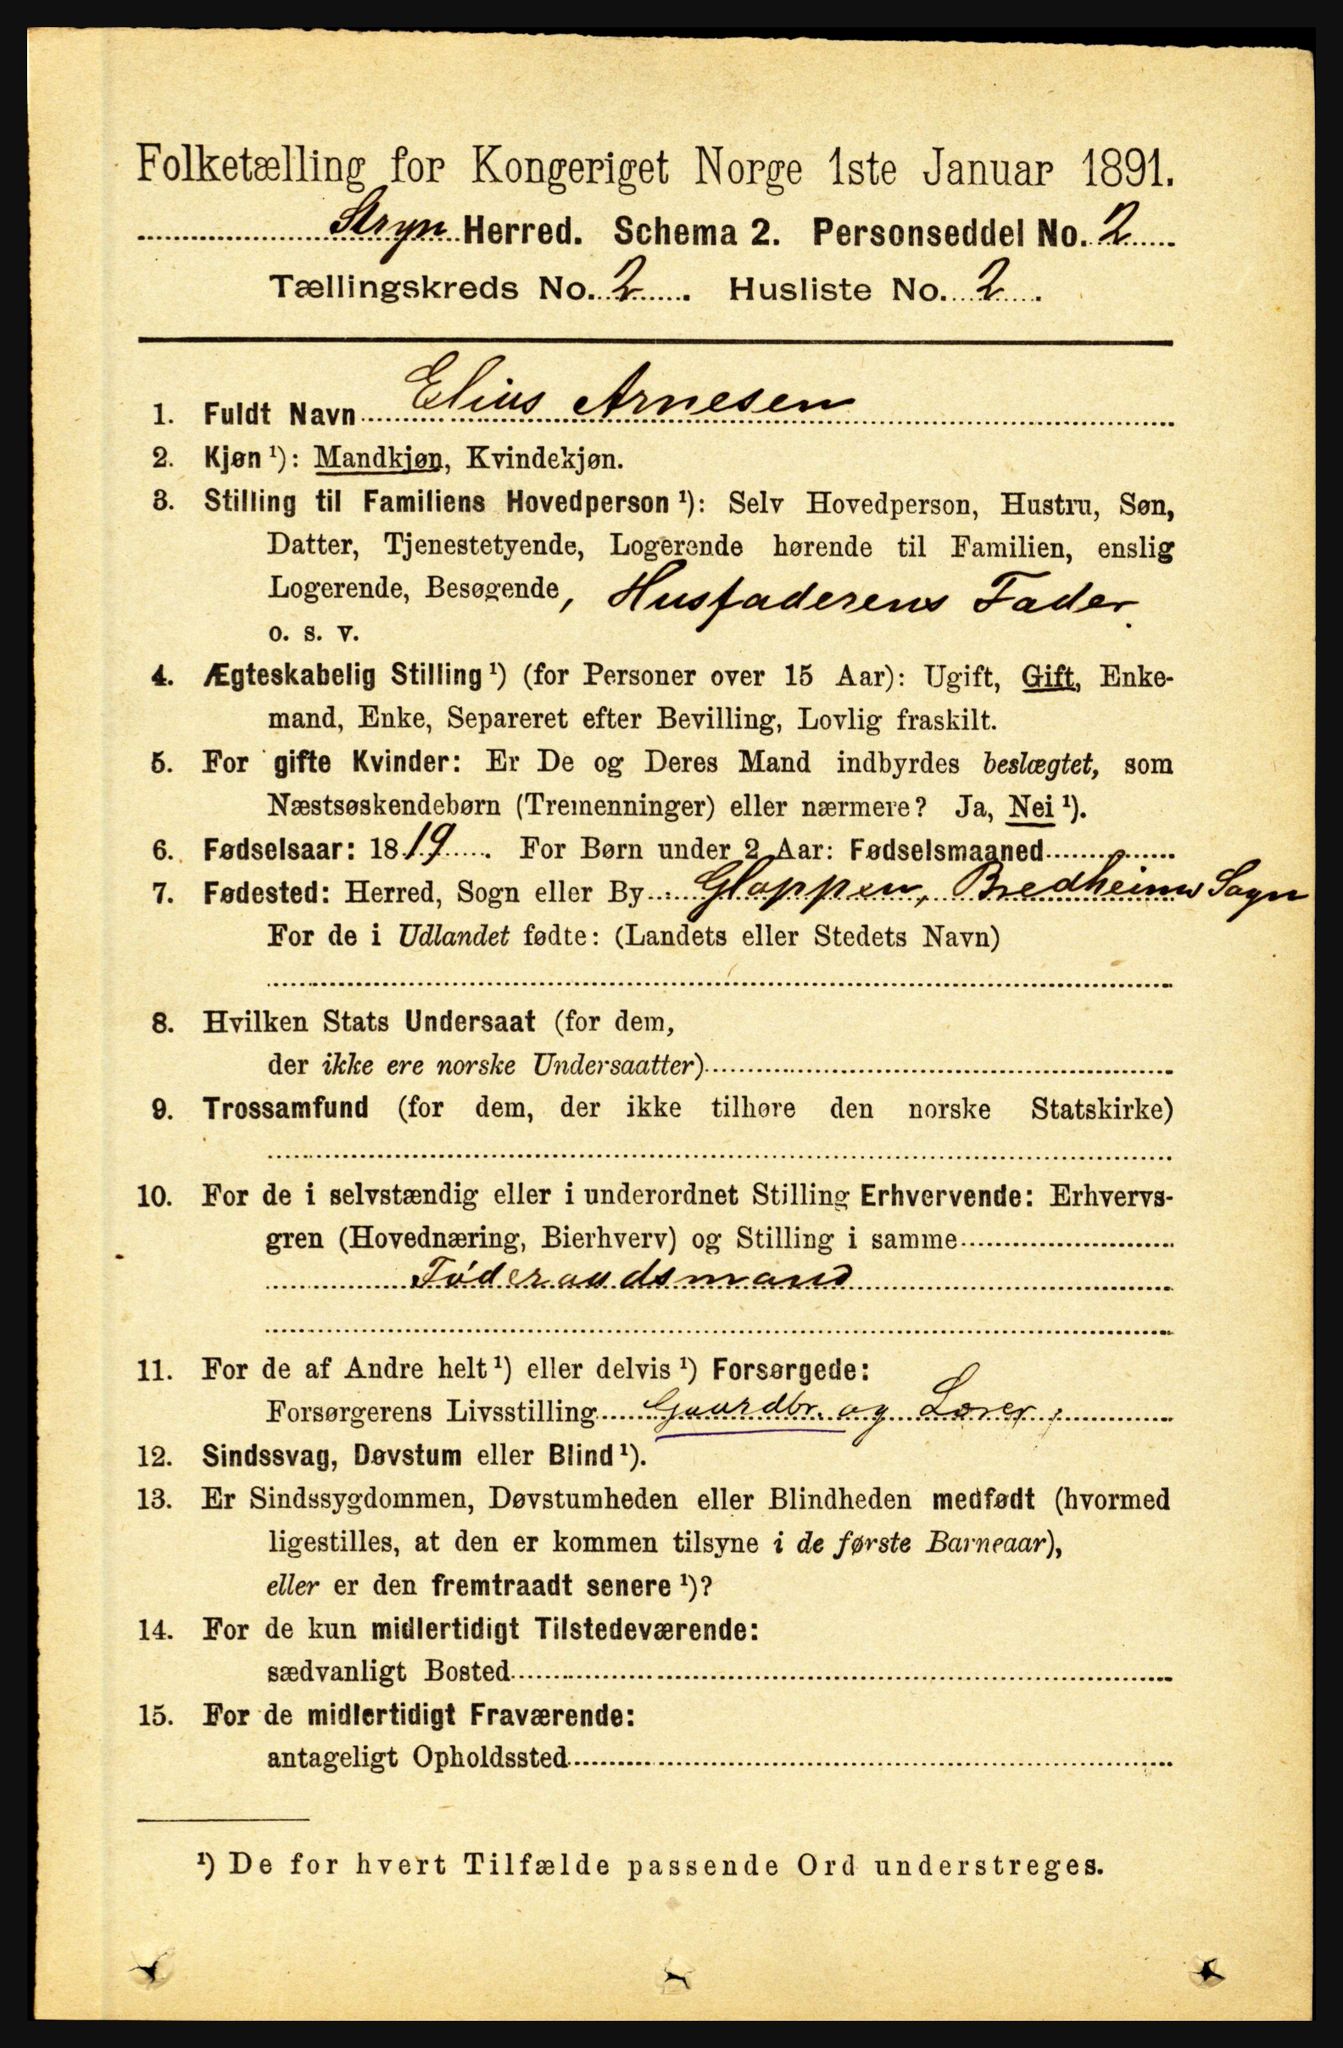 Folketælling for Kongeriget Norge 1ste Januar 1891.
Stryn Herred. Schema 2. Personseddel No. 2
Tællingskreds No. 2. Husliste No. 2.
1. Fuldt Navn Elius Arnesen
2. Kjøn ¹): Mandkjøn, Kvindekjøn.
3. Stilling til Familiens Hovedperson ¹): Selv Hovedperson, Hustru, Søn,
Datter, Tjenestetyende, Logerende hørende til Familien, enslig
Logerende, Besøgende, Husfaderens Fader.
o. s. v.
4. Ægteskabelig Stilling ¹) (for Personer over 15 Aar): Ugift, Gift, Enke-
mand, Enke, Separeret efter Bevilling, Lovlig fraskilt.
5. For gifte Kvinder: Er De og Deres Mand indbyrdes beslægtet, som
Næstsøskendebørn (Tremenninger) eller nærmere? Ja, Nei ¹).
6. Fødselsaar: 1819. For Børn under 2 Aar: Fødselsmaaned
7. Fødested: Herred, Sogn eller By: Gloppen, Bredheims Sogn
For de i Udlandet fødte: (Landets eller Stedets Navn)
8. Hvilken Stats Undersaat (for dem,
der ikke ere norske Undersaatter)
9. Trossamfund (for dem, der ikke tilhøre den norske Statskirke)
10. For de i selvstændig eller i underordnet Stilling Erhvervende: Erhvervs-
gren (Hovednæring, Bierhverv) og Stilling i samme
Føderaadsmand
11. For de af Andre helt ¹) eller delvis ¹) Forsørgede:
Forsørgerens Livsstilling Gaardbr. og Lærer.
12. Sindssvag, Døvstum eller Blind ¹).
13. Er Sindssygdommen, Døvstumheden eller Blindheden medfødt (hvormed
ligestilles, at den er kommen tilsyne i de første Barneaar),
eller er den fremtraadt senere ¹)?
14. For de kun midlertidigt Tilstedeværende:
sædvanligt Bosted
15. For de midlertidigt Fraværende:
antageligt Opholdssted
¹) De for hvert Tilfælde passende Ord understreges.